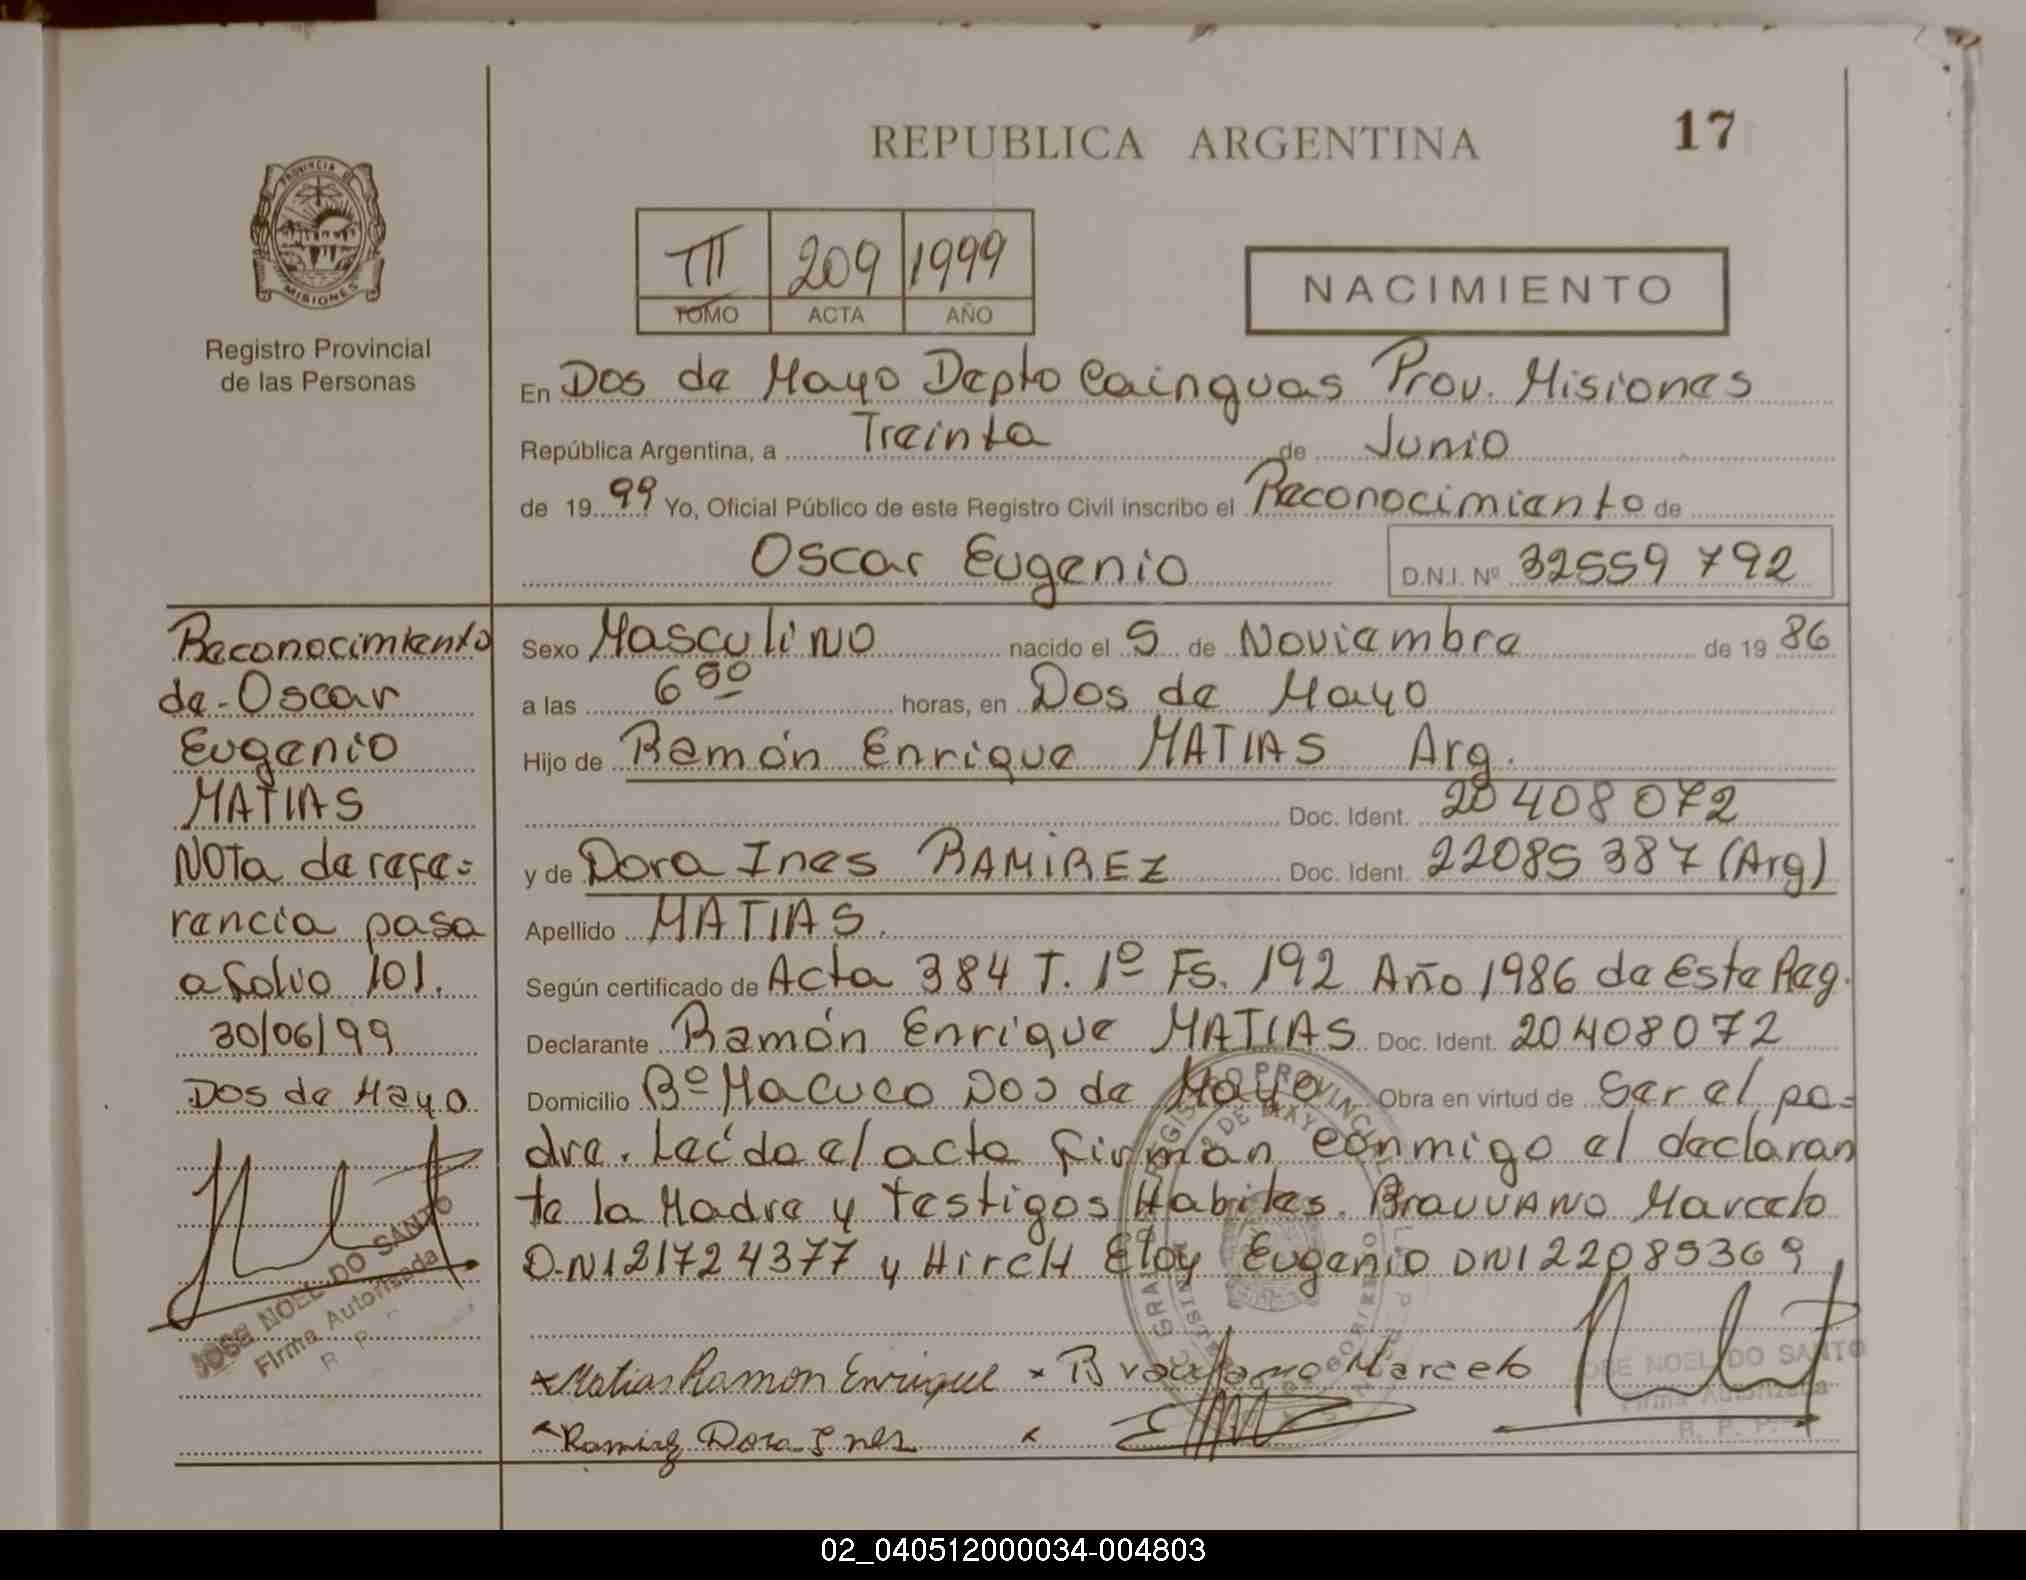 REPUBLICA ARGENTINA
17
PROVINCIA DE
MISIONES
Registro Provincial
de las Personas
III 209 1999
TOMO ACTA AÑO
NACIMIENTO
En Dos de Mayo Depto Cainguas Prov. Misiones
República Argentina, a Treinta de Junio
de 1999 Yo, Oficial Público de este Registro Civil inscribo el Reconocimiento de
Oscar Eugenio D.N.I. Nº 32559792
Sexo Masculino nacido el 5 de Noviembre de 1986
a las horas, en Dos de Mayo
Hijo de Ramón Enrique MATIAS Arg.
Doc. Ident. 20408072
y de Dora Ines RAMIREZ Doc. Ident. 22085387 (Arg)
Apellido MATIAS.
Según certificado de Acta 384 T. 1º Fs. 192 Año 1986 de Este Reg.
Declarante Ramón Enrique MATIAS Doc. Ident. 20408072
Domicilio Bº Macuco Dos de Mayo Obra en virtud de Ser el pa=
dre. Leída el acta firman conmigo el declaran
te la Madre y Testigos Habiles. Marcelo
D.N.I 21724377 y HircH Eloy Eugenio DNI 22085369
Matias Ramon Enrique Marcelo
Ramirez Dora Ines
JOSE NOEL DO SANTO
Firma Autorizada
R. P. P.
Reconocimiento
de - Oscar
Eugenio
MATIAS
NOTa de refe=
rencia pasa
a folio 101.
30/06/99
Dos de Mayo
JOSE NOEL DO SANTO
Firma Autorizada
R P
02_040512000034-004803